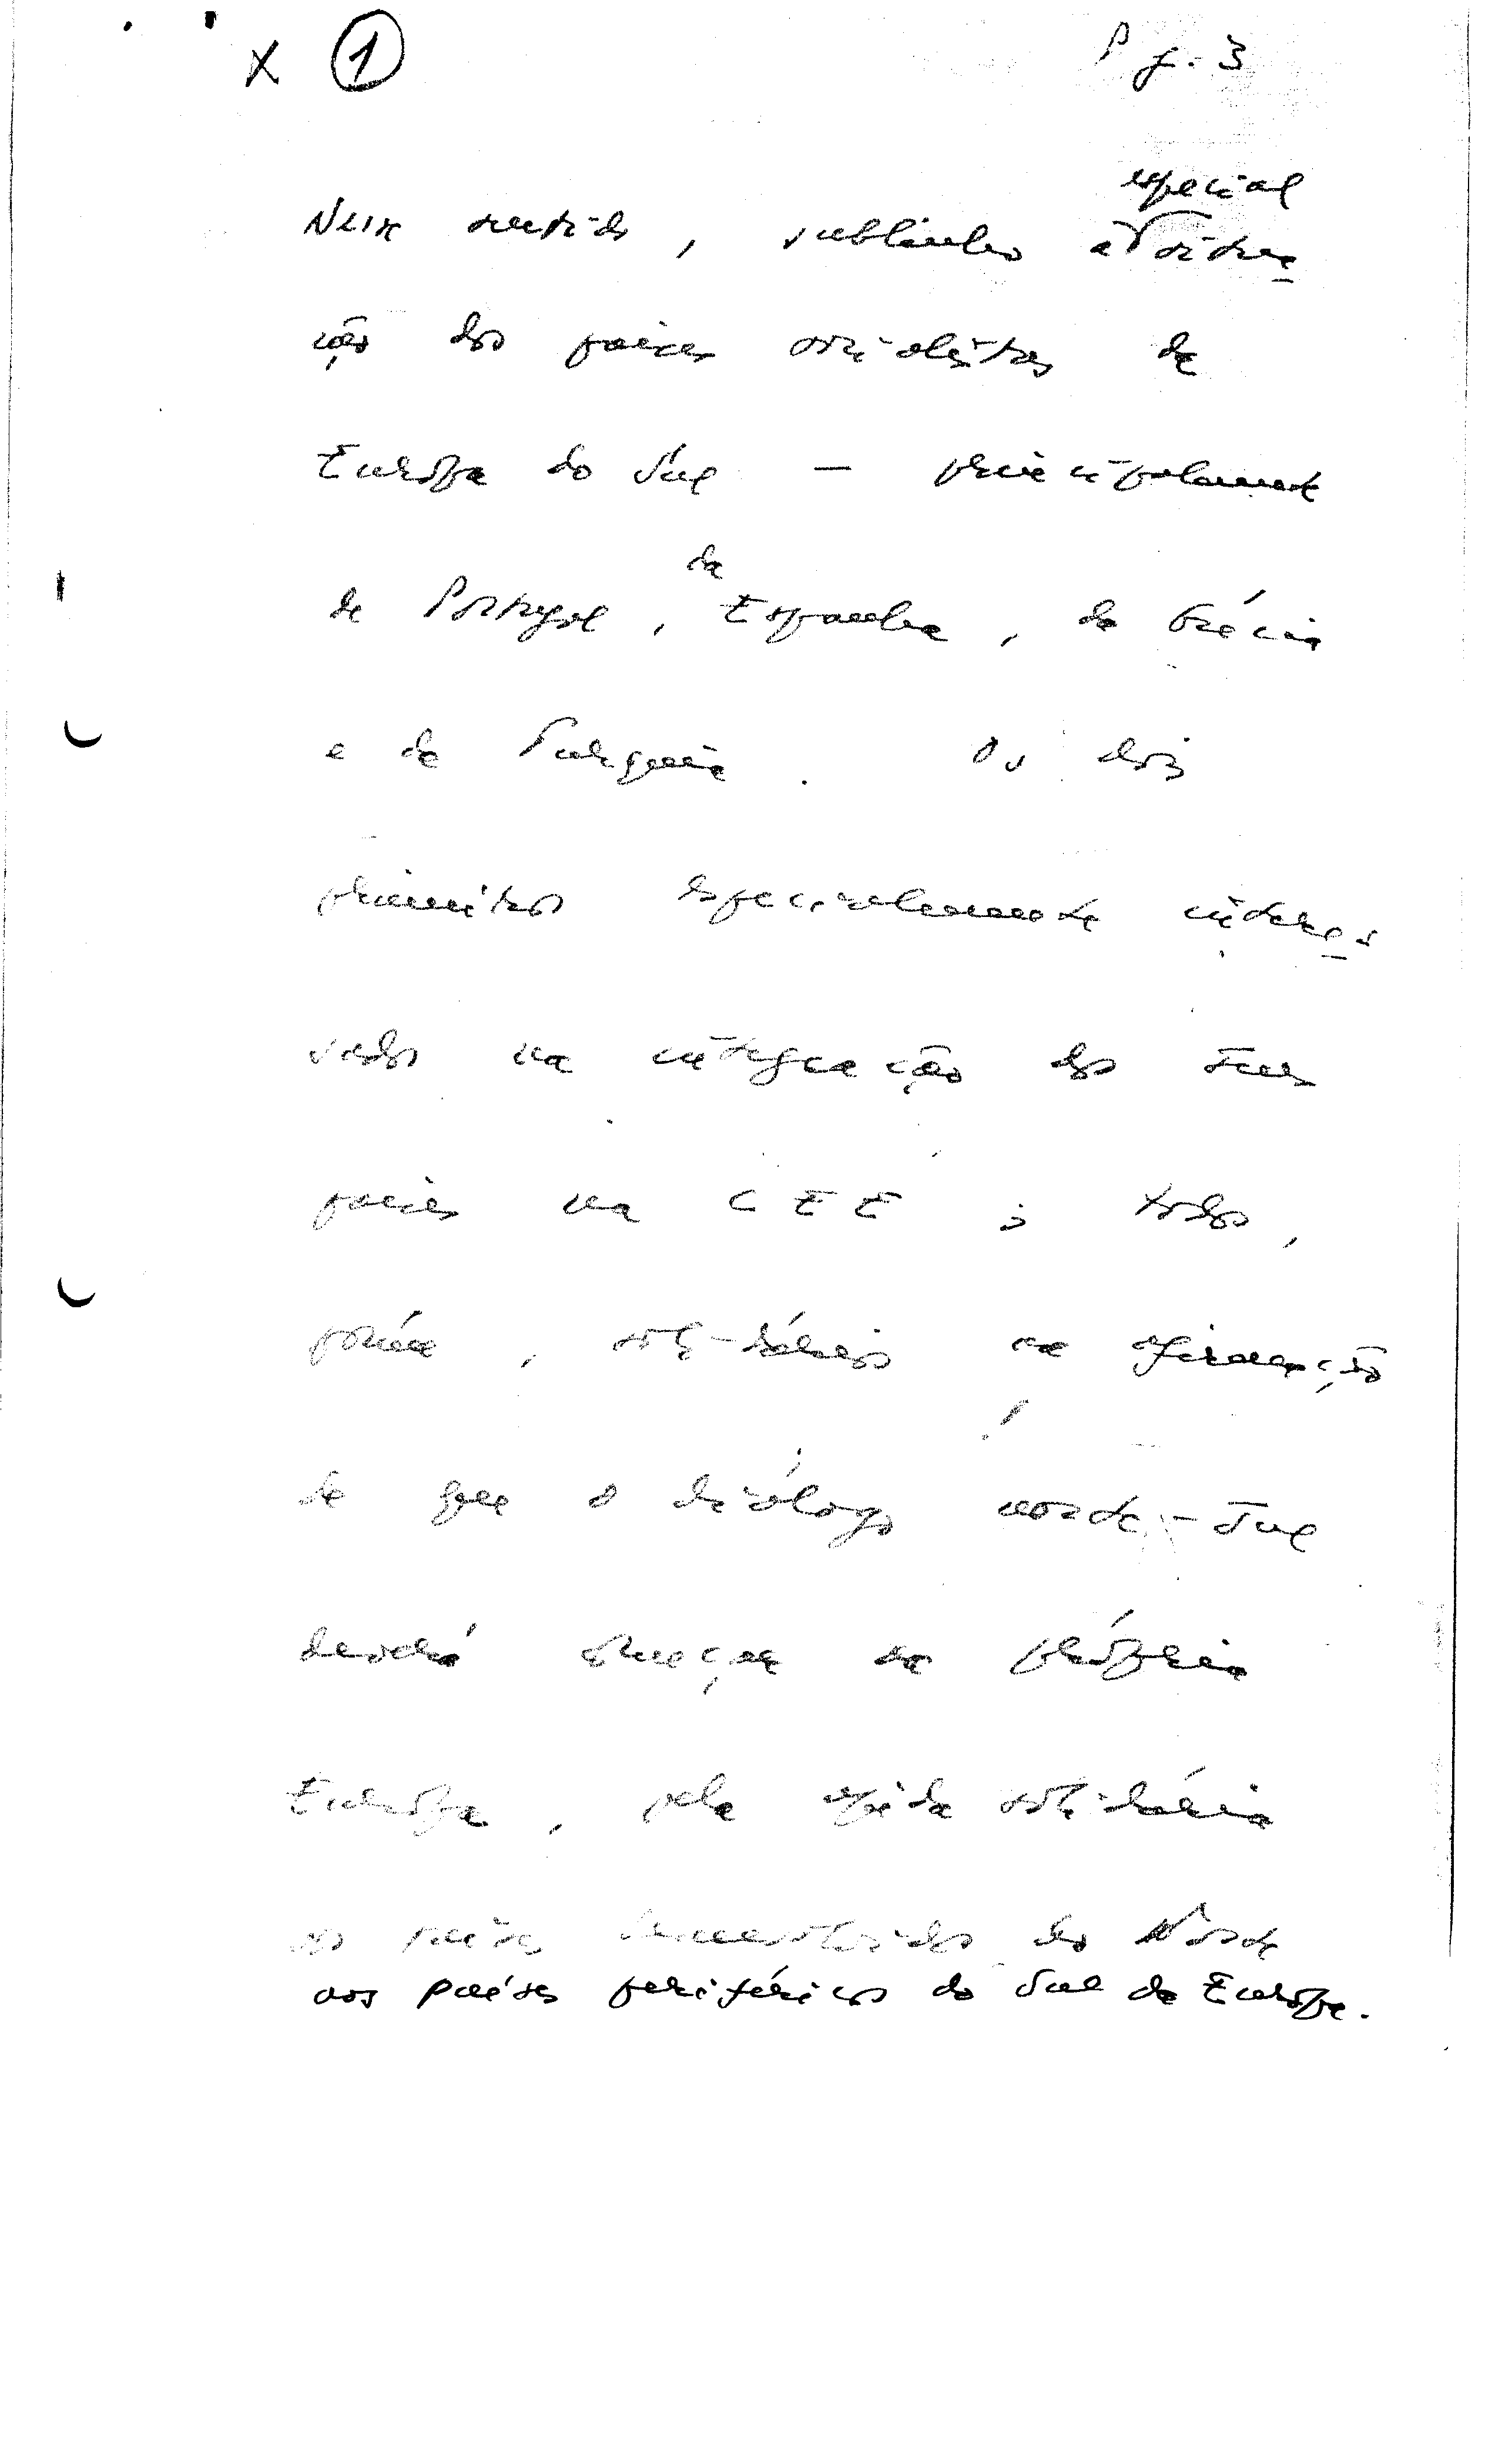 x ① Pg. 3
especial
Neste sentido, sublinho a situa-
ção dos países socialistas da
Europa do Sul — principalmente
da
de Portugal, Espanha, da Grécia
e da Turquia. Os dois
primeiros especialmente interes-
sados na integração dos seus
países na CEE; todos,
porém, solidários na afirmação
de que o diálogo norte-Sul
deverá começar na própria
Europa, pela ajuda solidária
dos países desenvolvidos do Norte
aos países periféricos do Sul da Europa.